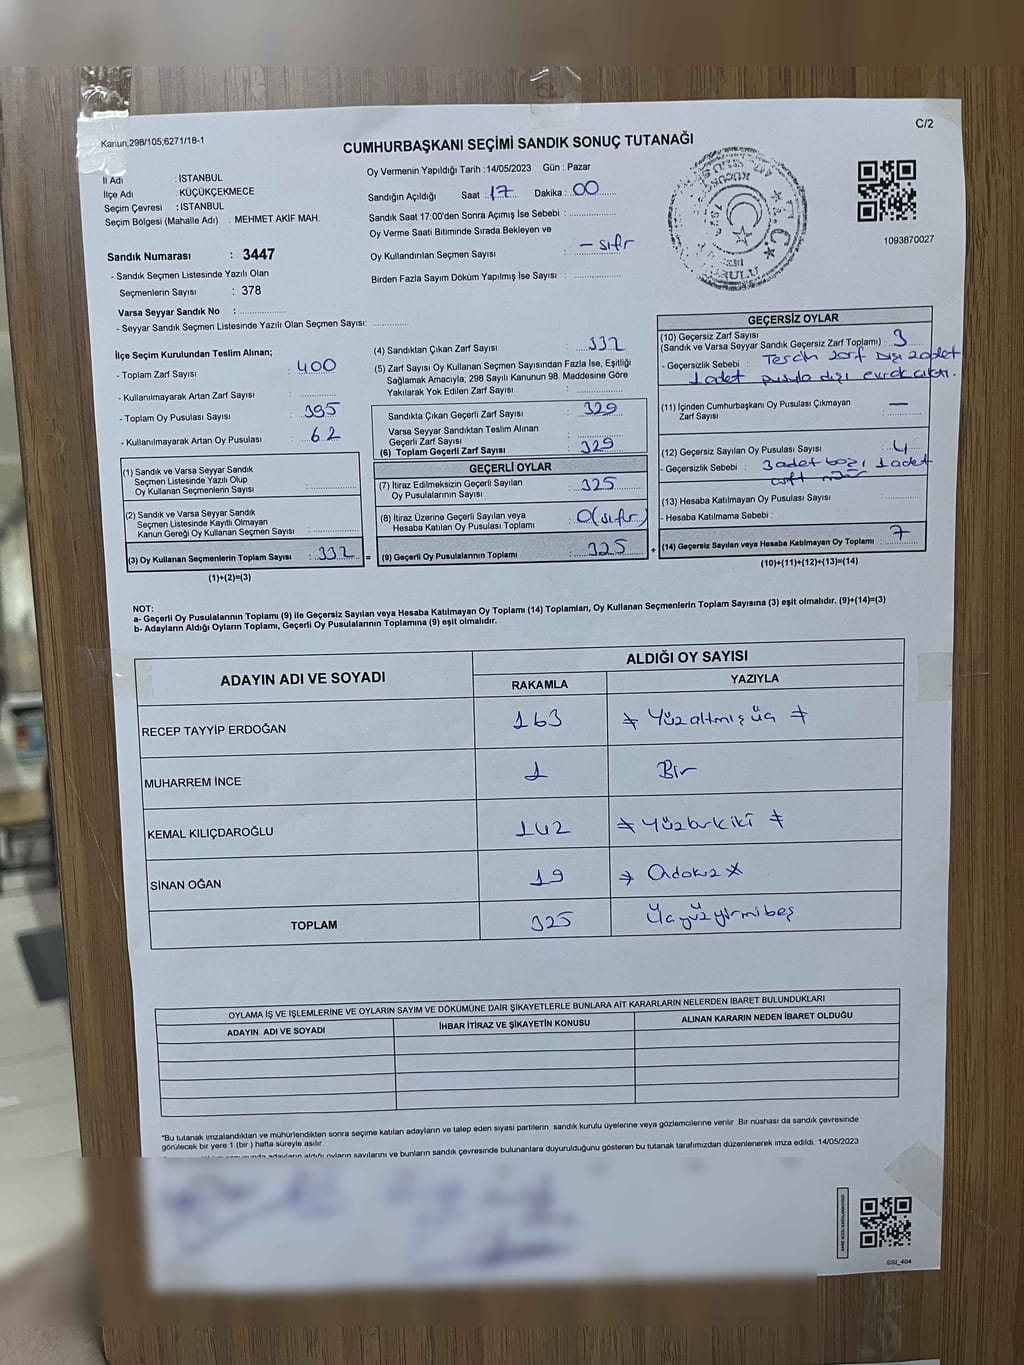 C/2
Kanun;298/105,6271/18-1
CUMHURBAŞKANI SEÇİMİ SANDIK SONUÇ TUTANAĞI
İl Adı : İSTANBUL
İlçe Adı : KÜÇÜKÇEKMECE
Seçim Çevresi : İSTANBUL
Seçim Bölgesi (Mahalle Adı) : MEHMET AKİF MAH.
Oy Vermenin Yapıldığı Tarih :14/05/2023 Gün : Pazar
Sandığın Açıldığı Saat : 17 Dakika : 00
Sandık Saat 17:00'den Sonra Açımış İse Sebebi :
Oy Verme Saati Bitiminde Sırada Bekleyen ve
Oy Kullandırılan Seçmen Sayısı : - sıfır
Birden Fazla Sayım Döküm Yapılmış İse Sayısı :
1093870027
Sandık Numarası : 3447
- Sandık Seçmen Listesinde Yazılı Olan
Seçmenlerin Sayısı : 378
Varsa Seyyar Sandık No :
- Seyyar Sandık Seçmen Listesinde Yazılı Olan Seçmen Sayısı:
İlçe Seçim Kurulundan Teslim Alınan;
- Toplam Zarf Sayısı : 400
- Kullanılmayarak Artan Zarf Sayısı :
- Toplam Oy Pusulası Sayısı : 395
- Kullanılmayarak Artan Oy Pusulası : 62
(1) Sandık ve Varsa Seyyar Sandık
Seçmen Listesinde Yazılı Olup
Oy Kullanan Seçmenlerin Sayısı :
(2) Sandık ve Varsa Seyyar Sandık
Seçmen Listesinde Kayıtlı Olmayan
Kanun Gereği Oy Kullanan Seçmen Sayısı :
(3) Oy Kullanan Seçmenlerin Toplam Sayısı : 332 =
(1)+(2)=(3)
(4) Sandıktan Çıkan Zarf Sayısı : 332
(5) Zarf Sayısı Oy Kullanan Seçmen Sayısından Fazla İse, Eşitliği
Sağlamak Amacıyla; 298 Sayılı Kanunun 98. Maddesine Göre
Yakılarak Yok Edilen Zarf Sayısı :
Sandıkta Çıkan Geçerli Zarf Sayısı : 329
Varsa Seyyar Sandıktan Teslim Alınan
Geçerli Zarf Sayısı :
(6) Toplam Geçerli Zarf Sayısı : 329
GEÇERLİ OYLAR
(7) İtiraz Edilmeksizin Geçerli Sayılan
Oy Pusulalarının Sayısı : 325
(8) İtiraz Üzerine Geçerli Sayılan veya
Hesaba Katılan Oy Pusulası Toplamı : 0(sıfır)
(9) Geçerli Oy Pusulalarının Toplamı : 325 +
GEÇERSİZ OYLAR
(10) Geçersiz Zarf Sayısı
(Sandık ve Varsa Seyyar Sandık Geçersiz Zarf Toplamı) : 3
- Geçersizlik Sebebi : Tercih zarf dışı 2 adet
1 adet pusula dışı evrak çıktı.
(11) İçinden Cumhurbaşkanı Oy Pusulası Çıkmayan
Zarf Sayısı : —
(12) Geçersiz Sayılan Oy Pusulası Sayısı : 4
- Geçersizlik Sebebi : 3 adet 1 adet
çift mühür
(13) Hesaba Katılmayan Oy Pusulası Sayısı :
- Hesaba Katılmama Sebebi :
(14) Geçersiz Sayılan veya Hesaba Katılmayan Oy Toplamı : 7
(10)+(11)+(12)+(13)=(14)
NOT:
a- Geçerli Oy Pusulalarının Toplamı (9) ile Geçersiz Sayılan veya Hesaba Katılmayan Oy Toplamı (14) Toplamları, Oy Kullanan Seçmenlerin Toplam Sayısına (3) eşit olmalıdır. (9)+(14)=(3)
b- Adayların Aldığı Oyların Toplamı, Geçerli Oy Pusulalarının Toplamına (9) eşit olmalıdır.
ADAYIN ADI VE SOYADI
ALDIĞI OY SAYISI
RAKAMLA YAZIYLA
RECEP TAYYİP ERDOĞAN 163 Yüzaltmışüç
MUHARREM İNCE 1 Bir
KEMAL KILIÇDAROĞLU 142 Yüzkırkiki
SİNAN OĞAN 19 Ondokuz
TOPLAM 325 Üçyüzyirmibeş
OYLAMA İŞ VE İŞLEMLERİNE VE OYLARIN SAYIM VE DÖKÜMÜNE DAİR ŞİKAYETLERLE BUNLARA AİT KARARLARIN NELERDEN İBARET BULUNDUKLARI
ADAYIN ADI VE SOYADI İHBAR İTİRAZ VE ŞİKAYETİN KONUSU ALINAN KARARIN NEDEN İBARET OLDUĞU
"Bu tutanak imzalandıktan ve mühürlendikten sonra seçime katılan adayların ve talep eden siyasi partilerin sandık kurulu üyelerine veya gözlemcilerine verilir. Bir nüshası da sandık çevresinde
görülecek bir yere 1 (bir ) hafta süreyle asılır.
adayların aldığı oyların sayılarını ve bunların sandık çevresinde bulunanlara duyurulduğunu gösteren bu tutanak tarafımızdan düzenlenerek imza edildi. 14/05/2023
SSI_404